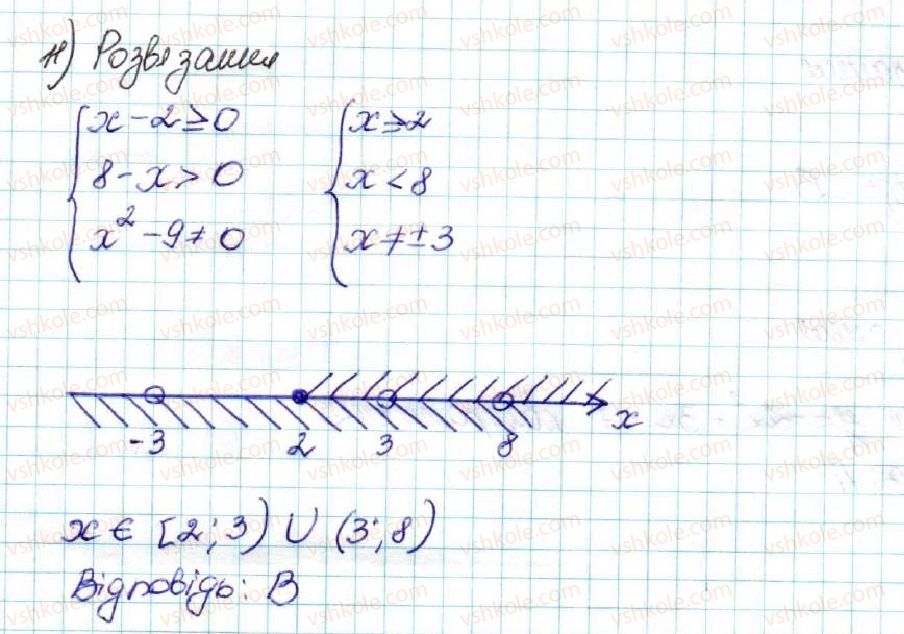 4) Розвязання
x - 2 ≥ 0 x ≥ 2
8 - x > 0 x < 8
x² - 9 ≠ 0 x ≠ ± 3
-3 2 3 8 x
x ∈ [2; 3) ∪ (3; 8)
Відповідь: В
vshkole.com